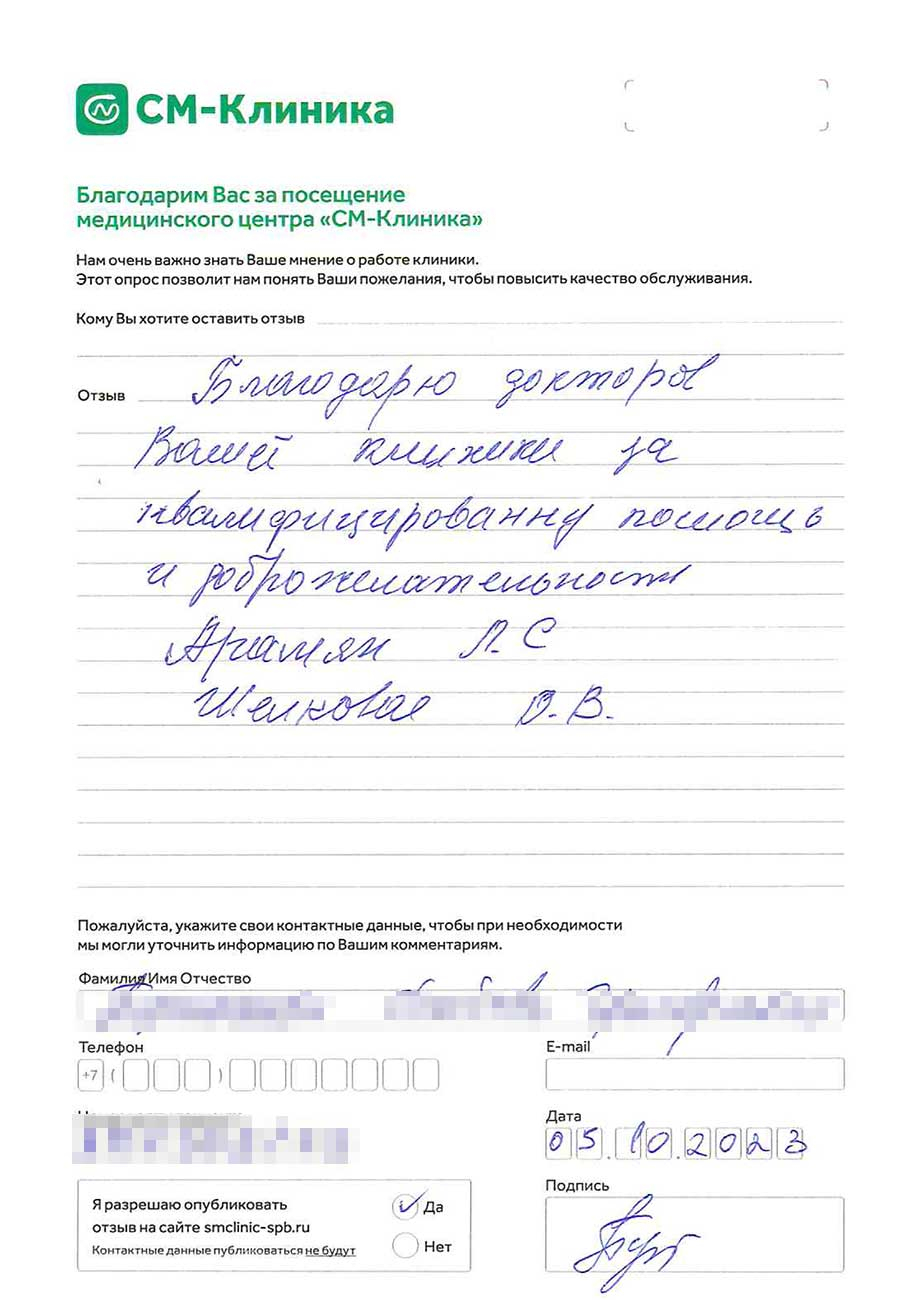 СМ-Клиника
Благодарим Вас за посещение
медицинского центра «СМ-Клиника»
Нам очень важно знать Ваше мнение о работе клиники.
Этот опрос позволит нам понять Ваши пожелания, чтобы повысить качество обслуживания.
Кому Вы хотите оставить отзыв
Отзыв Благодарю докторов
Вашей клиники за
квалифицированну помощь
и доброжелательность
Л.С
О.В.
Пожалуйста, укажите свои контактные данные, чтобы при необходимости
мы могли уточнить информацию по Вашим комментариям.
Фамилия Имя Отчество
Телефон
+7 ( )
E-mail
Дата
05.10.2023
Я разрешаю опубликовать
отзыв на сайте smclinic-spb.ru
Контактные данные публиковаться не будут
Да
Нет
Подпись